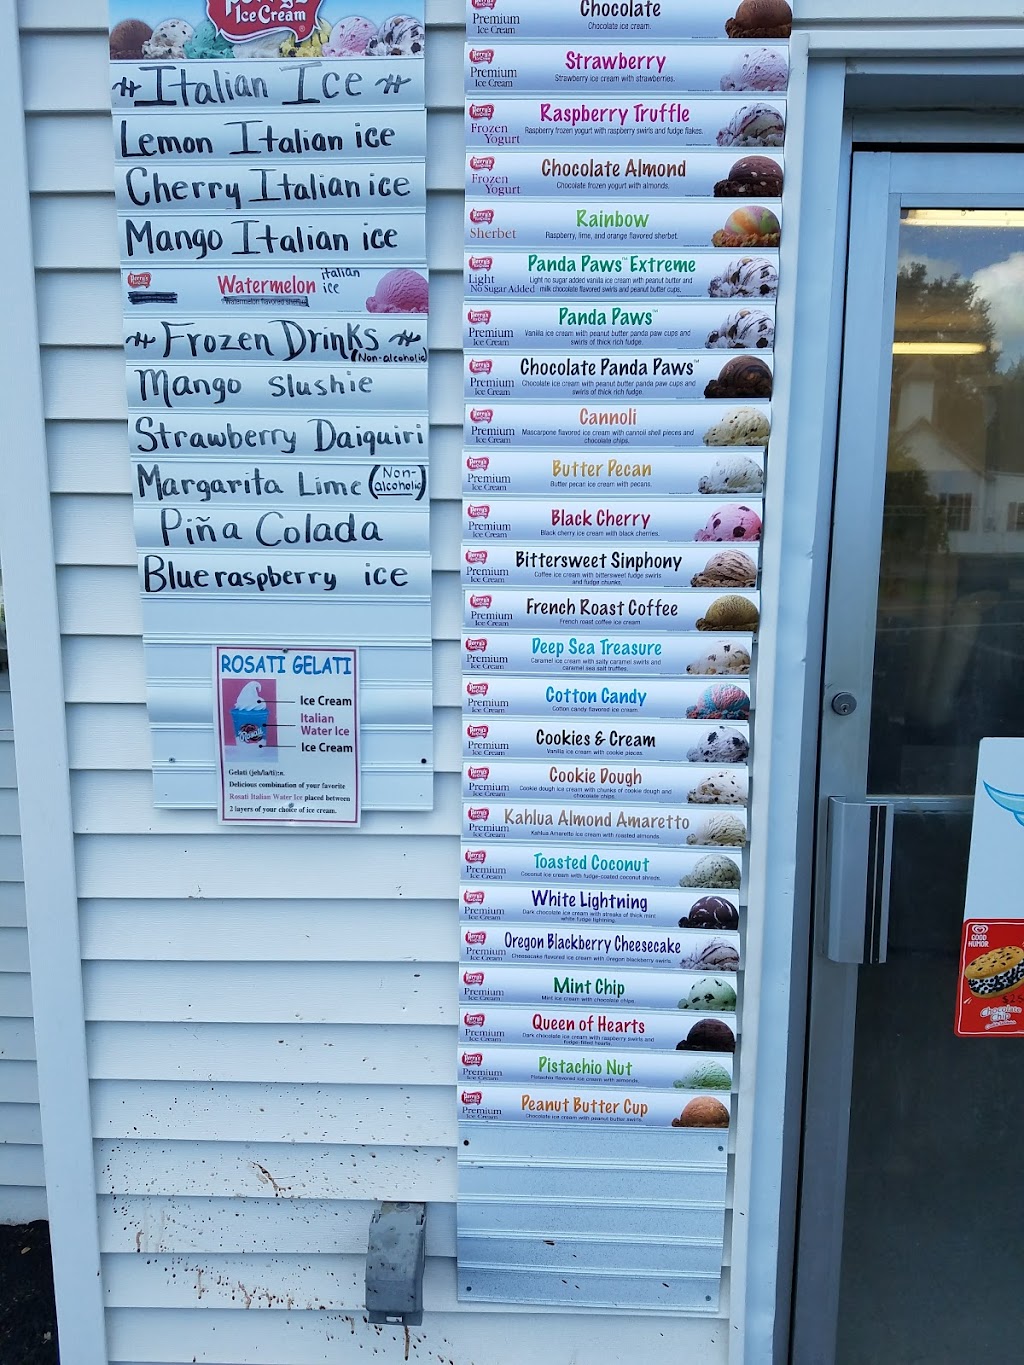 Perry's
Ice Cream
Italian Ice
Lemon Italian ice
Cherry Italian ice
Mango Italian ice
Perry's
Watermelon italian
ice
Watermelon flavored sherbet
Frozen Drinks
(Non-alcoholic)
Mango slushie
Strawberry Daiquiri
Margarita Lime (Non-
alcoholic)
Piña Colada
Blue raspberry ice
ROSATI GELATI
Ice Cream
Italian
Water Ice
Ice Cream
Gelati (jeh/la/ti):n.
Delicious combination of your favorite
Rosati Italian Water Ice placed between
2 layers of your choice of ice cream.
Premium
Ice Cream
Chocolate
Chocolate ice cream.
Perry's
Premium
Ice Cream
Strawberry
Strawberry ice cream with strawberries.
Perry's
Frozen
Yogurt
Raspberry Truffle
Raspberry frozen yogurt with raspberry swirls and fudge flakes.
Perry's
Frozen
Yogurt
Chocolate Almond
Chocolate frozen yogurt with almonds.
Perry's
Sherbet
Rainbow
Raspberry, lime, and orange flavored sherbet.
Perry's
Light
No Sugar Added
Panda Paws™ Extreme
Light no sugar added vanilla ice cream with peanut butter and
milk chocolate flavored swirls and peanut butter cups.
Perry's
Premium
Ice Cream
Panda Paws™
Vanilla ice cream with peanut butter panda paw cups and
swirls of thick rich fudge.
Perry's
Premium
Ice Cream
Chocolate Panda Paws™
Chocolate ice cream with peanut butter panda paw cups and
swirls of thick rich fudge.
Perry's
Premium
Ice Cream
Cannoli
Mascarpone flavored ice cream with cannoli shell pieces and
chocolate chips.
Perry's
Premium
Ice Cream
Butter Pecan
Butter pecan ice cream with pecans.
Perry's
Premium
Ice Cream
Black Cherry
Black cherry ice cream with black cherries.
Perry's
Premium
Ice Cream
Bittersweet Sinphony
Coffee ice cream with bittersweet fudge swirls
and fudge chunks.
Perry's
Premium
Ice Cream
French Roast Coffee
French roast coffee ice cream
Perry's
Premium
Ice Cream
Deep Sea Treasure
Caramel ice cream with salty caramel swirls and
caramel sea salt truffles.
Perry's
Premium
Ice Cream
Cotton Candy
Cotton candy flavored ice cream.
Perry's
Premium
Ice Cream
Cookies & Cream
Vanilla ice cream with cookie pieces.
Perry's
Premium
Ice Cream
Cookie Dough
Cookie dough ice cream with chunks of cookie dough and
chocolate chips.
Perry's
Premium
Ice Cream
Kahlua Almond Amaretto
Kahlua Amaretto ice cream with roasted almonds.
Perry's
Premium
Ice Cream
Toasted Coconut
Coconut ice cream with fudge-coated coconut shreds.
Perry's
Premium
Ice Cream
White Lightning
Dark chocolate ice cream with streaks of thick mint
white fudge lightning.
Perry's
Premium
Ice Cream
Oregon Blackberry Cheesecake
Cheesecake flavored ice cream with Oregon blackberry swirls.
Perry's
Premium
Ice Cream
Mint Chip
Mint ice cream with chocolate chips.
Perry's
Premium
Ice Cream
Queen of Hearts
Dark chocolate ice cream with raspberry swirls and
fudge filled hearts.
Perry's
Premium
Ice Cream
Pistachio Nut
Pistachio flavored ice cream with almonds.
Perry's
Premium
Ice Cream
Peanut Butter Cup
Chocolate ice cream with peanut butter swirls.
GOOD
HUMOR
Chocolate
Chip